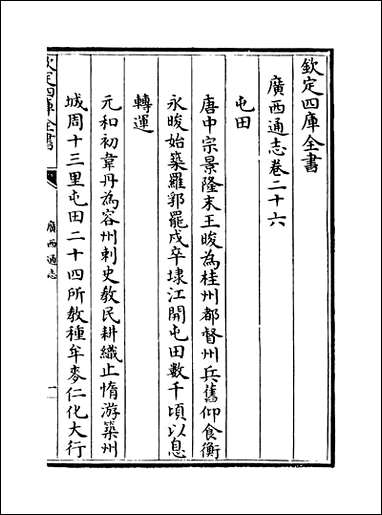 欽定四庫全書
廣西通志卷二十六
屯田
唐中宗景隆末王晙為桂州都督州兵舊仰食衡
永晙始築羅郭罷戍卒埭江開屯田數千頃以息
轉運
元和初韋丹為容州刺史教民耕織止惰游築州
城周十三里屯田二十四所教種牟麥仁化大行
欽定四庫全書
廣西通志
一